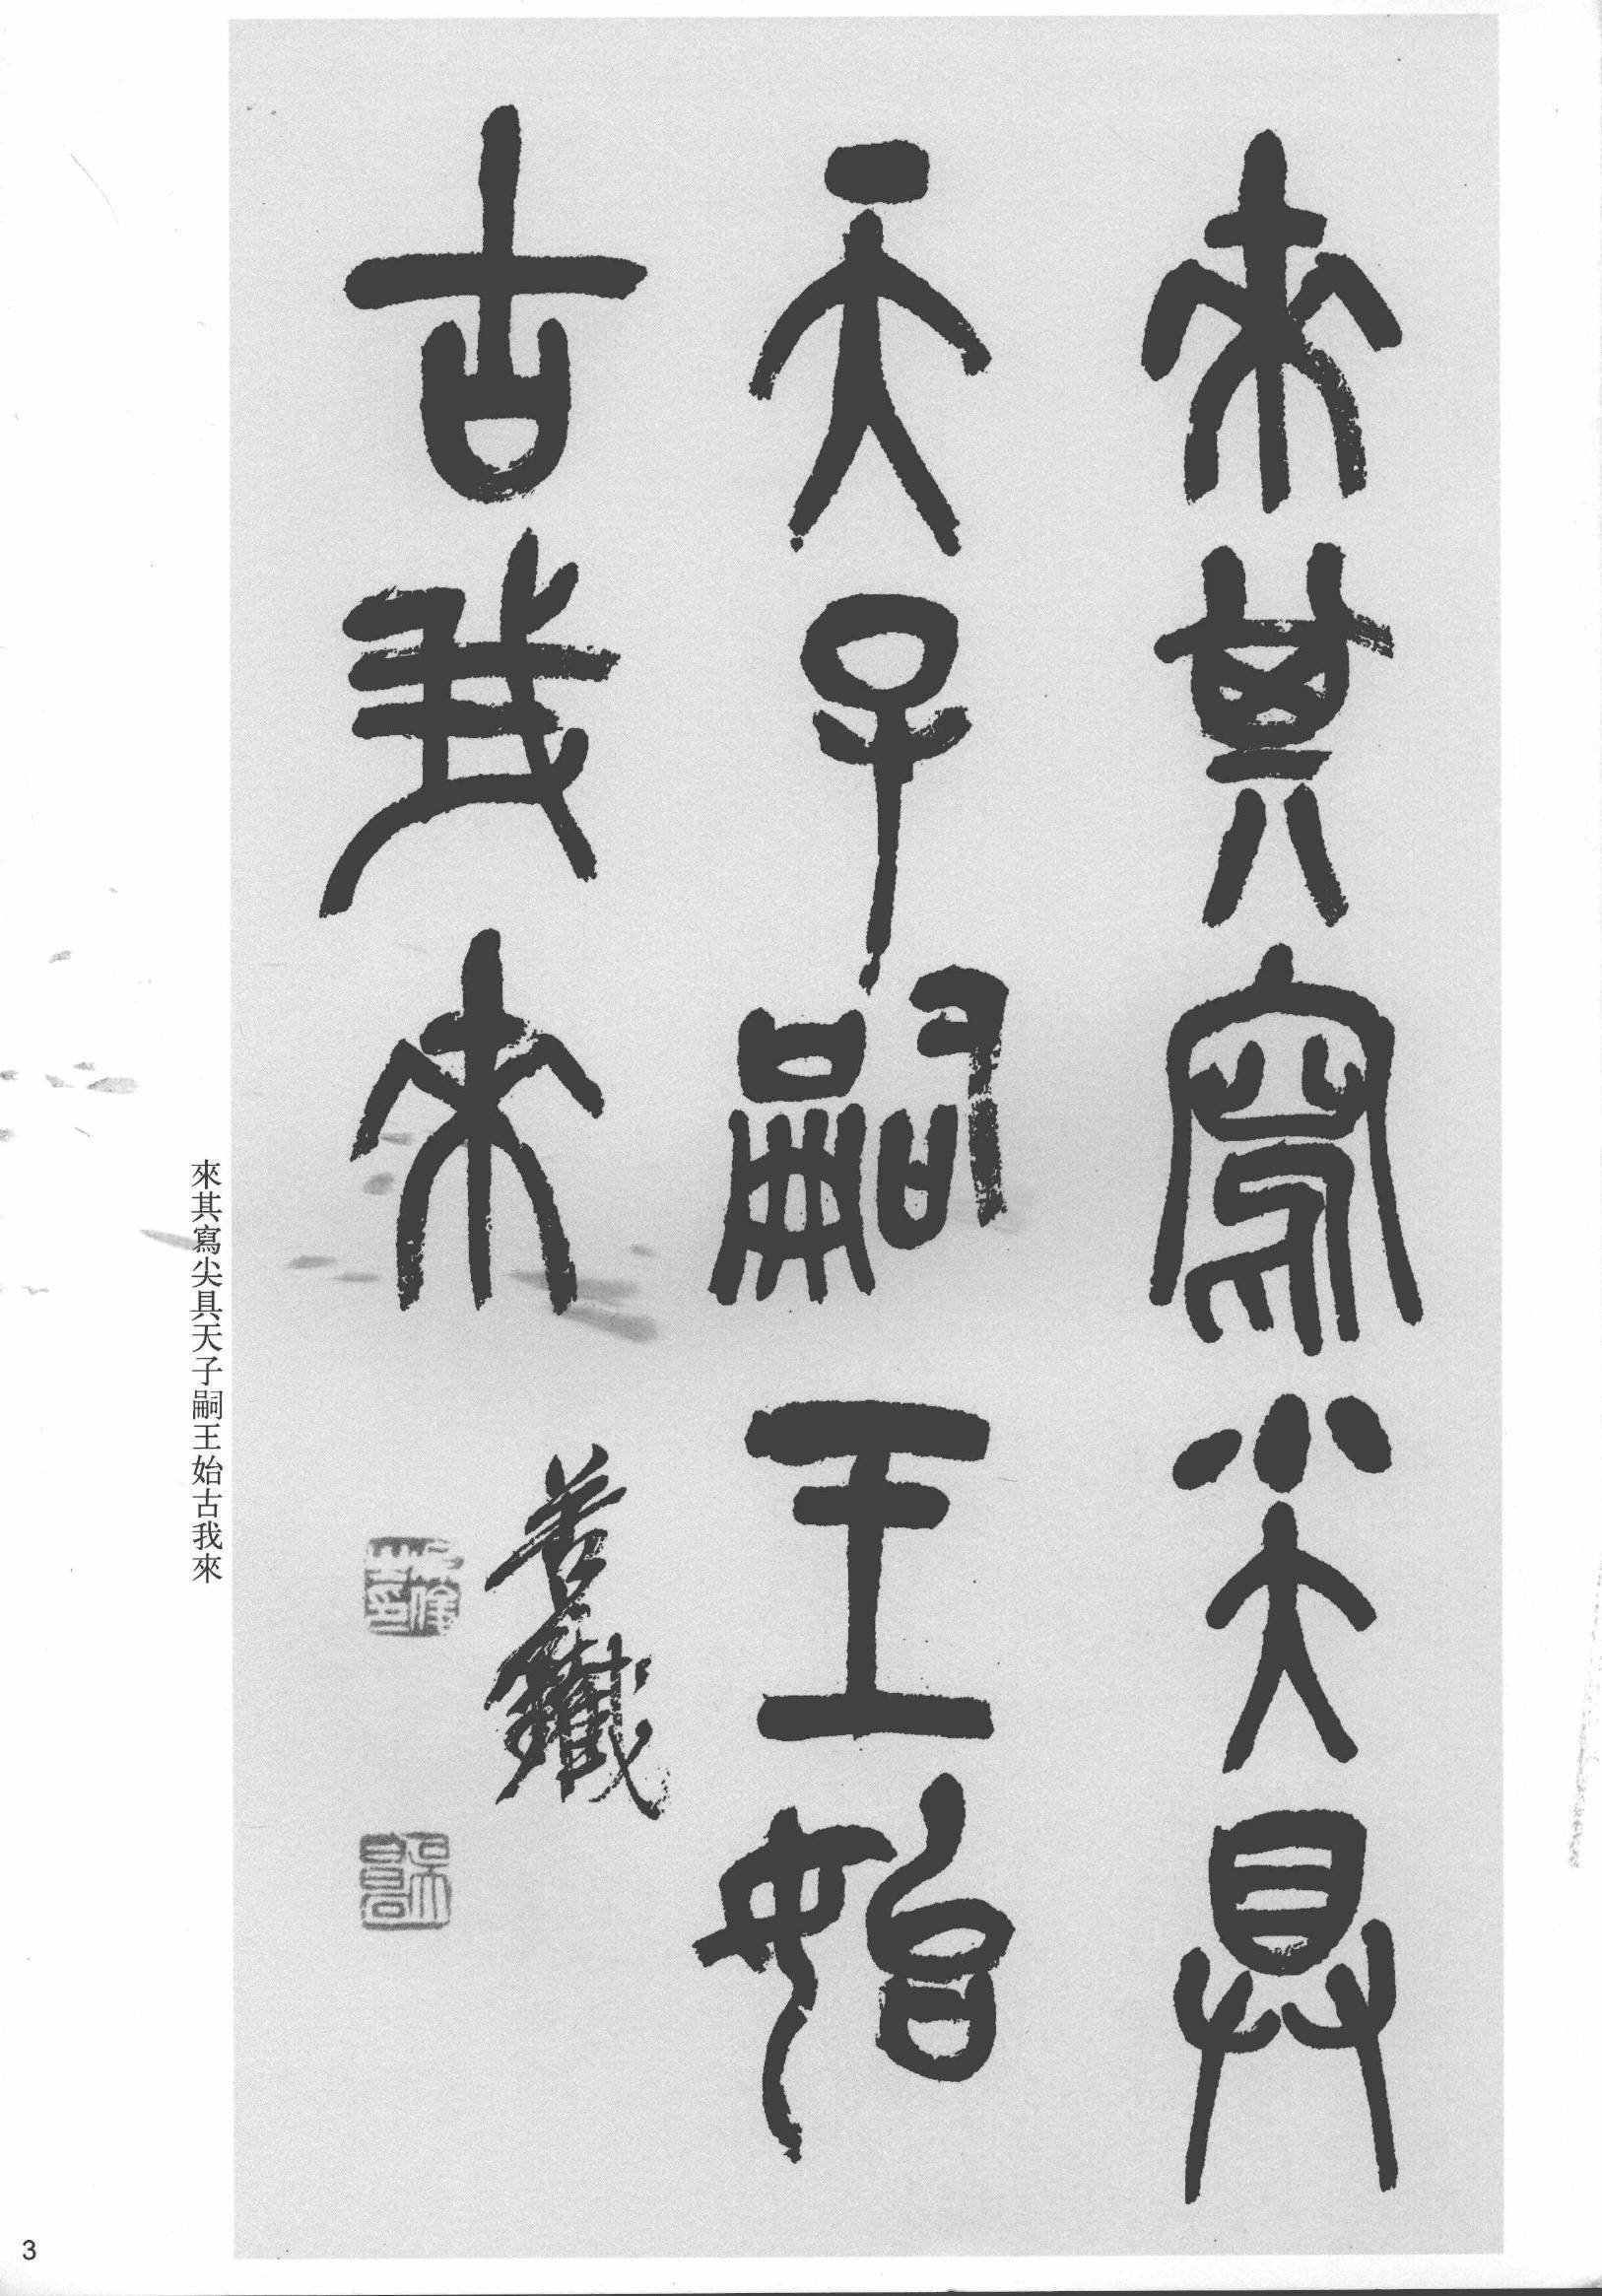 來其寫尖具
天子嗣王始
古我來
善鐵
來其寫尖具天子嗣王始古我來
3